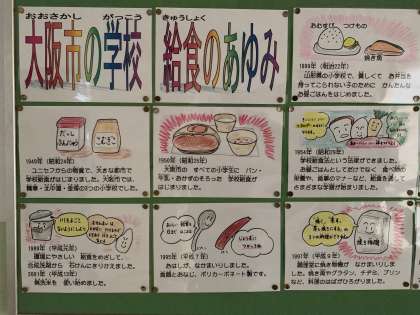 おおさかし がっこう
大阪市の学校
きゅうしょく
給食のあゆみ
おむすび つけもの
焼き魚
1889年（明治22年）
山形県の小学校で、貧しくて お弁当を
持ってこられない子のために かんたんな
お昼ごはんをはじめました。
だっし
ふんにゅう
こむぎこ
1949年（昭和24年）
ユニセフからの物資で、大きな都市で
学校給食がはじまりました。大阪市では、
1950年（昭和25年）
大阪市の すべての小学生に パン・
牛乳・おかずのそろった 学校給食が
はじまりました。
1954年（昭和29年）
学校給食法という法律ができました。
お昼ごはんとしてだけでなく 食べ物の
栄養や、食事のマナーなど、給食を通して
さまざまな学習が始まりました。
1989年（平成元年）
環境にやさしい 給食をめざして、
合成洗剤から 石けんにきりかえました。
2001年（平成13年）
無洗米を 使い始めました。
1995年（平成7年）
おはしが、なかまいりしました。
食器とおなじ、ポリカーボネート製です。
焼き物機
1997年（平成9年）
調理室に焼き物機が なかまいりしました。
焼き魚やグラタン、チヂミ、プリン
など、料理のはばがひろがりました。